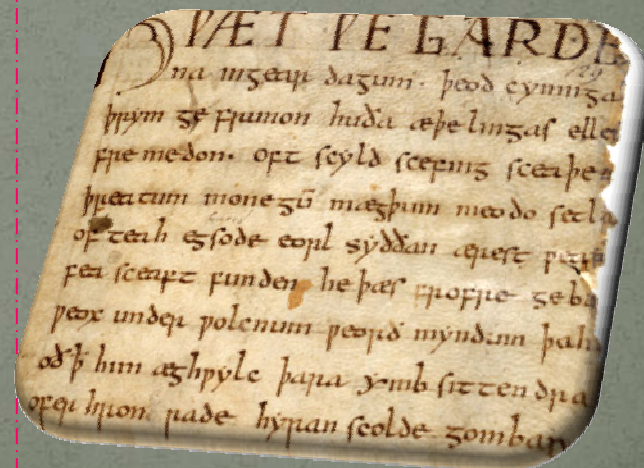 HǷÆT ǷE GARDE
na ingear dagum. þeod cyninga
þrym ge frunon huða æþelingas elle
fremedon. oft scyld scefing sceaþe
þreatum monegū mægþum meodo setla
of teah egsode eorl syððan ærest
fea sceaft funden he þæs frofre geba
ƿeox under ƿolcnum ƿeorð myndum þah
oð ꝥ him æghƿylc þara ymb sittendra
ofer hron rade hyran scolde gomban